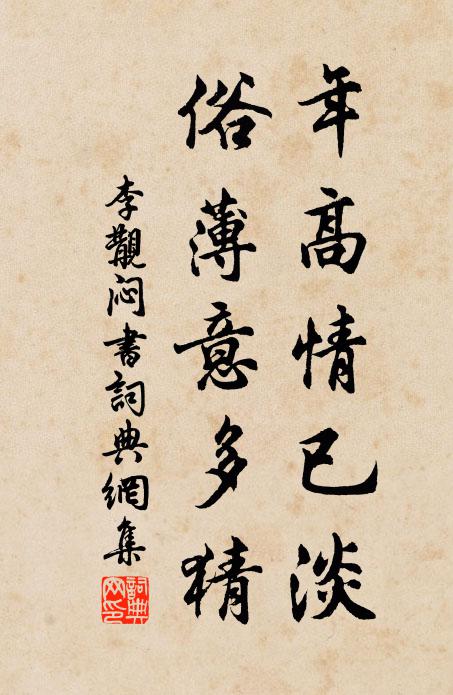 年高情已淡
俗薄意多猜
李覯闷書詞典網集
詞典
网印